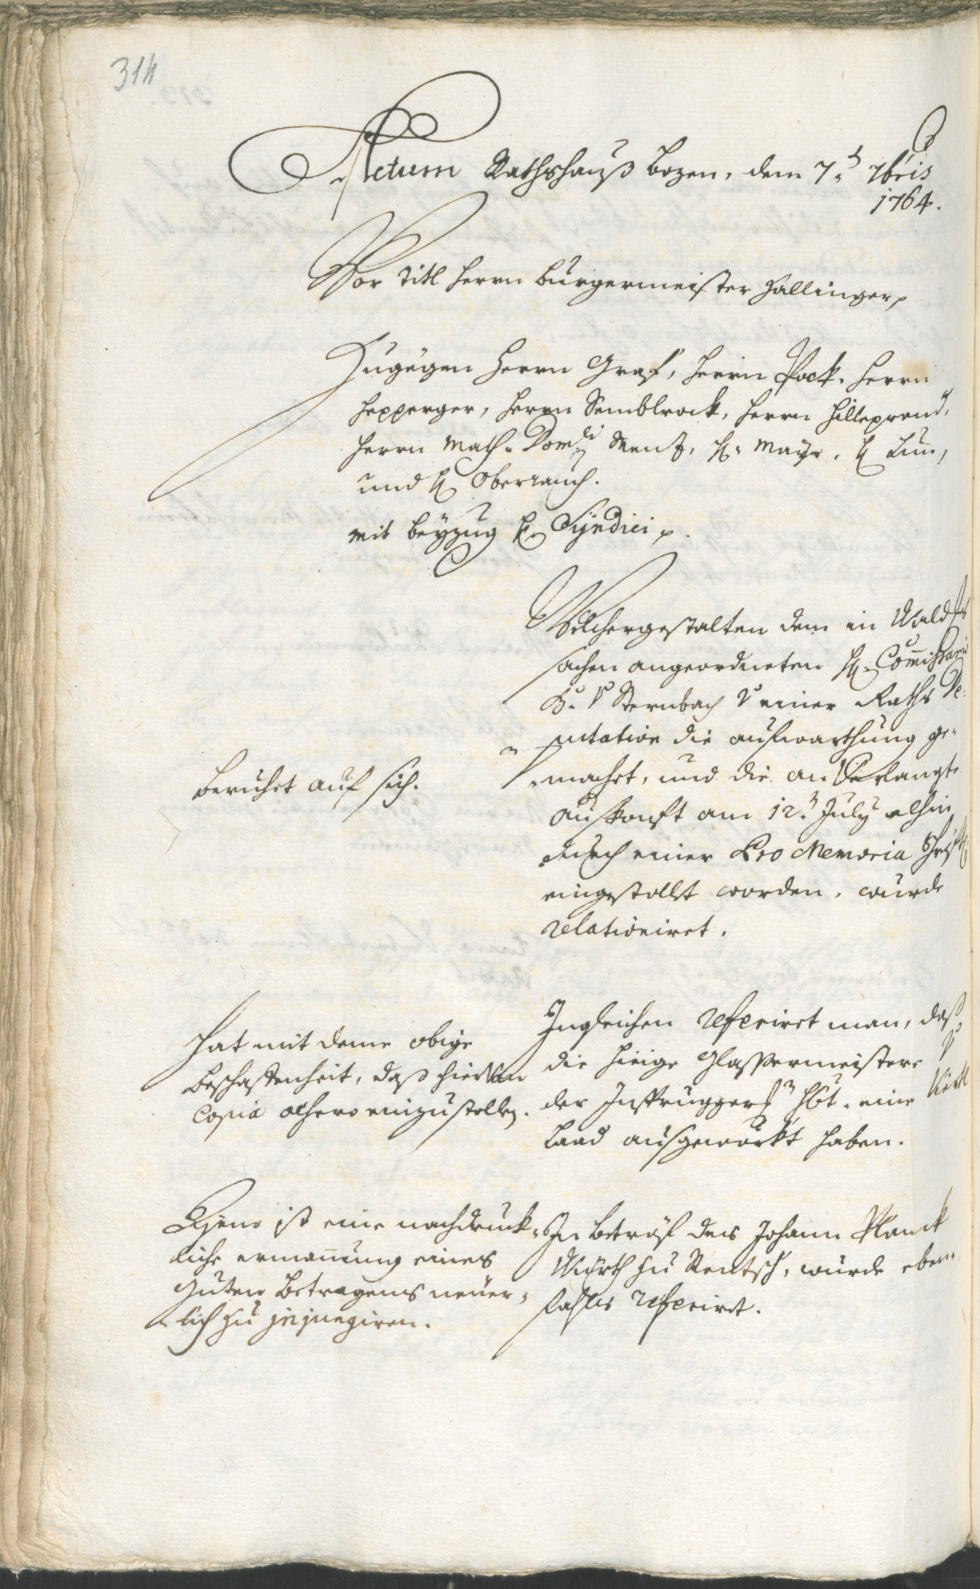 314
Actum Rathshauß Bozen, dem 7.t 7bris
1764.
Vor titl Herrn Burgermeister Hallinger,
Zugegen Herrn Graf, Herrn Pock, Herrn
Hepperger, Herrn Semblrock, Herrn Hilleprand,
Herrn Math. Dom. Menz, H. Mayr, H
und H Oberrauch.
mit beyzug H. Syndici.
Welchergestalten dem in Wald
sachen angeordneten H. Commissario
B. v Sternbach v einer Raths De-
putation die aufwarthung ge-
machet, und die anverlangte
Auskonft am 12.t July alhin
durch einer Pro Memoria
eingestellt worden, wurde
relationiret.
Beruhet auf sich.
Ingleichen referiret man, daß
die hieige Glassermeistere v
der Insprugger Hbt. eine Viertl
Laad ausgewürkt haben.
Hat mit deme obige
Beschaffenheit, daß hievon
Copia alhero einzustellen.
In Betröf des Johann Planck
Würth zu Rentsch, wurde eben-
fahls referiret.
Ihme ist eine nachdruck-
liche ermannung eines
guten Betragens neuer-
lich zu injungiren.